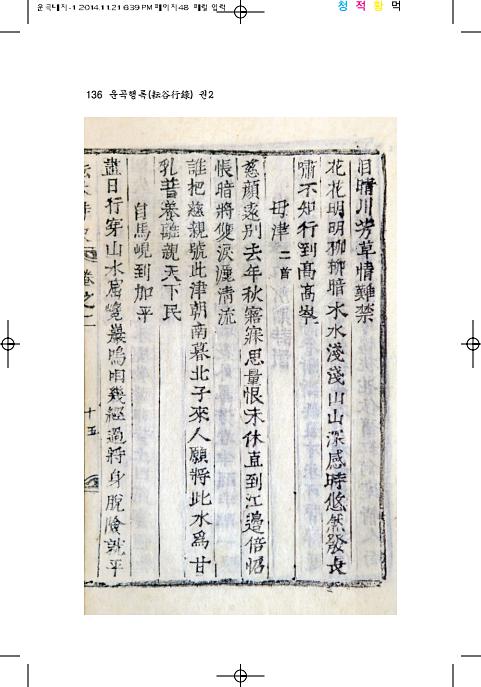 운곡내지-1 2014.11.21 6:39 PM 페이지48 매킬 입력
청 적 황 먹
136 운곡행록(耘谷行錄) 권2
汨晴川芳草情難禁
花花明明柳柳暗水水淺淺山山深感時悠然發長
嘯不知行到高高岑
母津 二首
慈顔遠別去年秋寤寐思量恨未休直到江邊倍怊
悵暗將雙淚灑淸流
誰把慈親號此津朝南暮北子來人願將此水爲甘
乳普養離親天下民
自馬峴到加平
盡日行穿山水窟巉巖嗚咽幾經過將身脫險就平
卷之二
十五